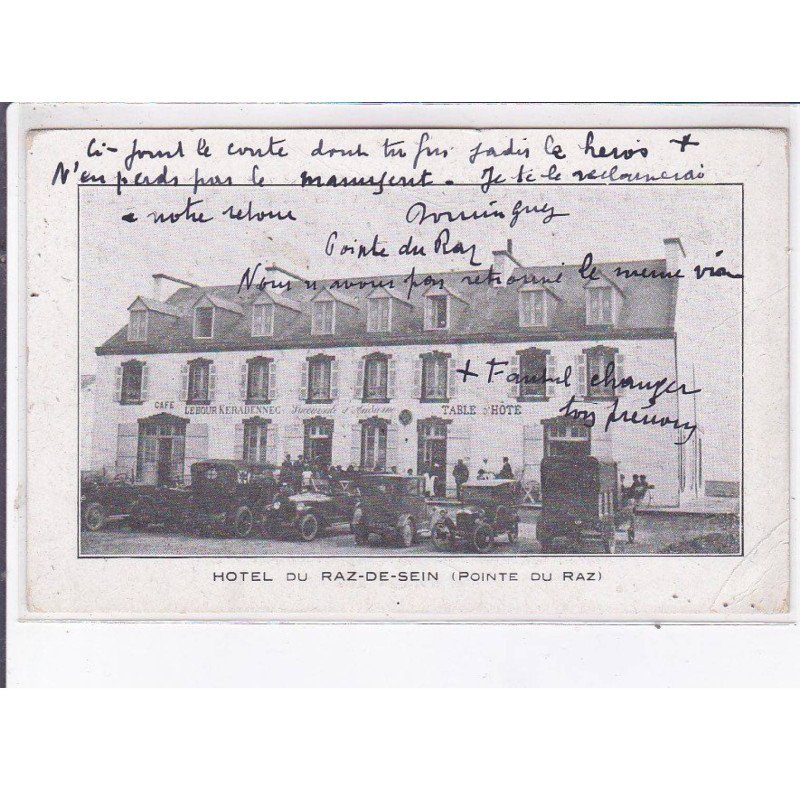 Ci-joint le conte dont tu fus jadis le héros +
N'en perds pas le manuscrit. Je te le réclamerai
a notre retour
Pointe du Raz
Nous n'avons pas retrouvé le même
+ Faut-il changer
ton prénom
CAFÉ LEBOUR KERADENNEC Succ TABLE D'HÔTE
HOTEL DU RAZ-DE-SEIN (POINTE DU RAZ)